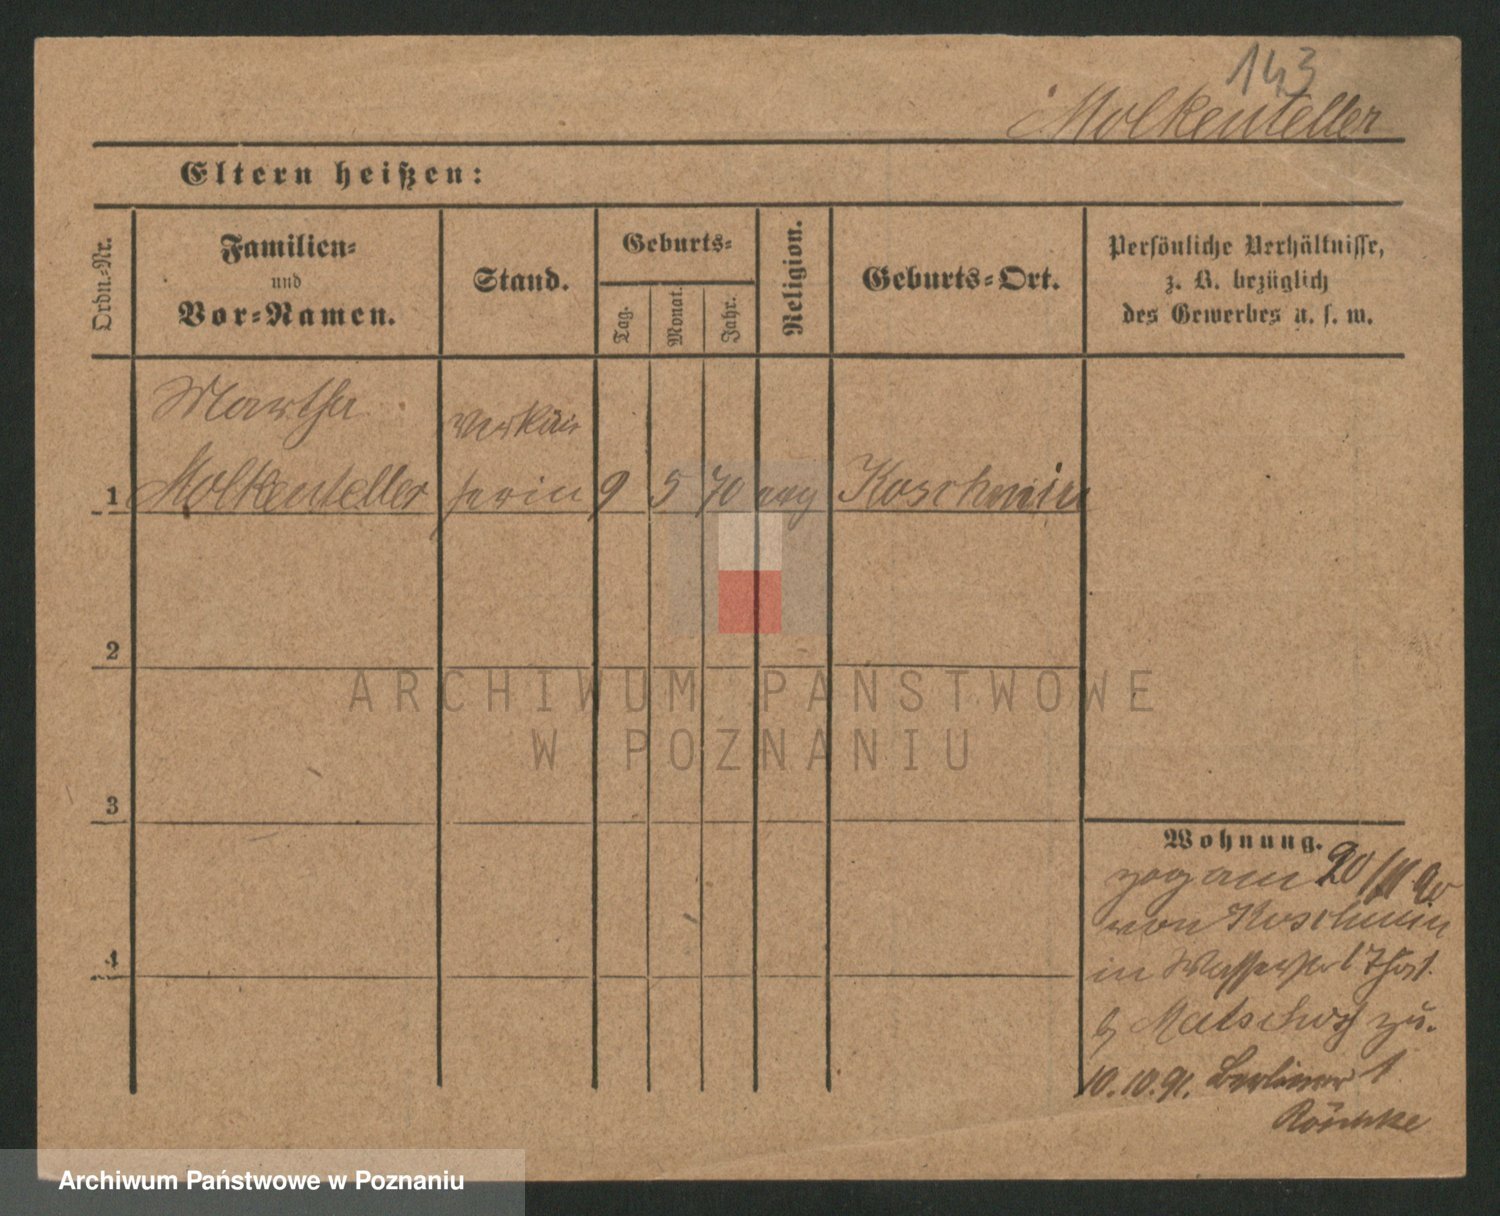 143
Molkenteller
Eltern heißen:
Ordn.-Nr.
Familien-
und
Vor-Namen.
Stand.
Geburts-
Tag.
Monat.
Jahr.
Religion.
Geburts-Ort.
Persönliche Verhältnisse,
z. B. bezüglich
des Gewerbes u. s. w.
Martha
Verkäu
1 Molkenteller ferin 9 5 70 evg Koschmin
2
ARCHIWUM PAŃSTWOWE
W POZNANIU
3
4
Wohnung.
zog am 20/11 90
von Koschmin
in Wasserstr 1
b/ zu.
10.10.91. Berliner 1
Archiwum Państwowe w Poznaniu